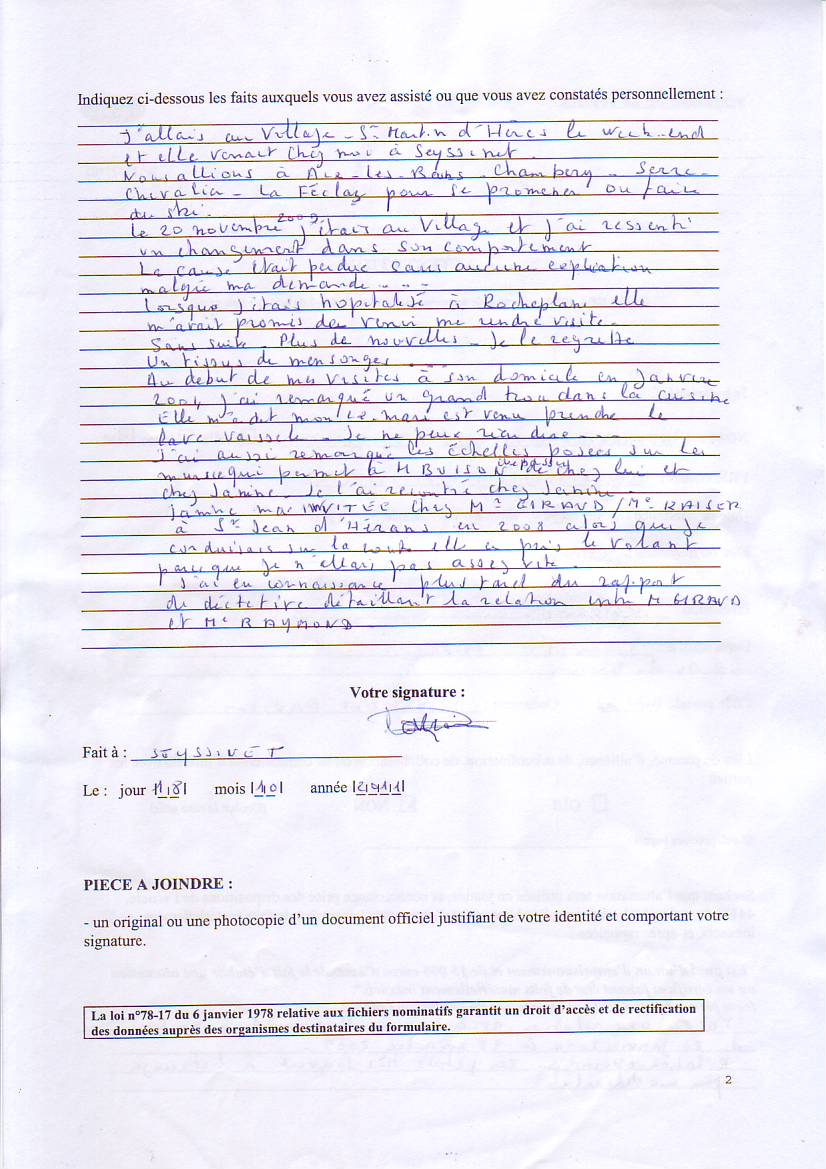 Indiquez ci-dessous les faits auxquels vous avez assisté ou que vous avez constatés personnellement :
J'allais au Village - St Martin d'Hères le week-end
et elle venait chez moi à Seyssinet.
Nous allions à Aix-les-Bains - Chambery - Serre-
Chevalier - La Féclaz pour se promener ou faire
du ski.
le 20 novembre 2009 j'étais au Village et j'ai ressenti
un changement dans son comportement
La cause était perdue sans aucune explication
malgré ma demande - - -
Lorsque j'étais hopitalisé à Rocheplane elle
m'avait promis de venir me rendre visite -
Sans suite - Plus de nouvelles - Je le regrette
Un tissus de mensonges
Au debut de mes visites à son domicile en Janvier
j'ai remarqué un grand trou dans la cuisine
Elle m'a dit mon ex-mari est venu prendre le
lave-vaisselle - Je ne peux rien dire - - -
J'ai aussi remarqué les échelles posées sur les
murs qui permet à M BUISON de passer chez lui et
chez Janine - Je l'ai recontré chez Janine -
Janine m'a INVITÉE chez Mr GIRAUD / Me RAISER
à St Jean d'Hérans en 2008 alors que je
conduisais sur la route elle a pris le volant
parce que je n'allais pas assez vite.
J'ai eu connaissance plus tard du rapport
de détective détaillant la relation entre M GIRAUD
et Me RAYMOND
Votre signature :
Fait à : SEYSSINET
Le : jour |1|8| mois |1|0| année |2|0|1|1|
PIECE A JOINDRE :
- un original ou une photocopie d'un document officiel justifiant de votre identité et comportant votre
signature.
La loi n°78-17 du 6 janvier 1978 relative aux fichiers nominatifs garantit un droit d'accès et de rectification
des données auprès des organismes destinataires du formulaire.
2